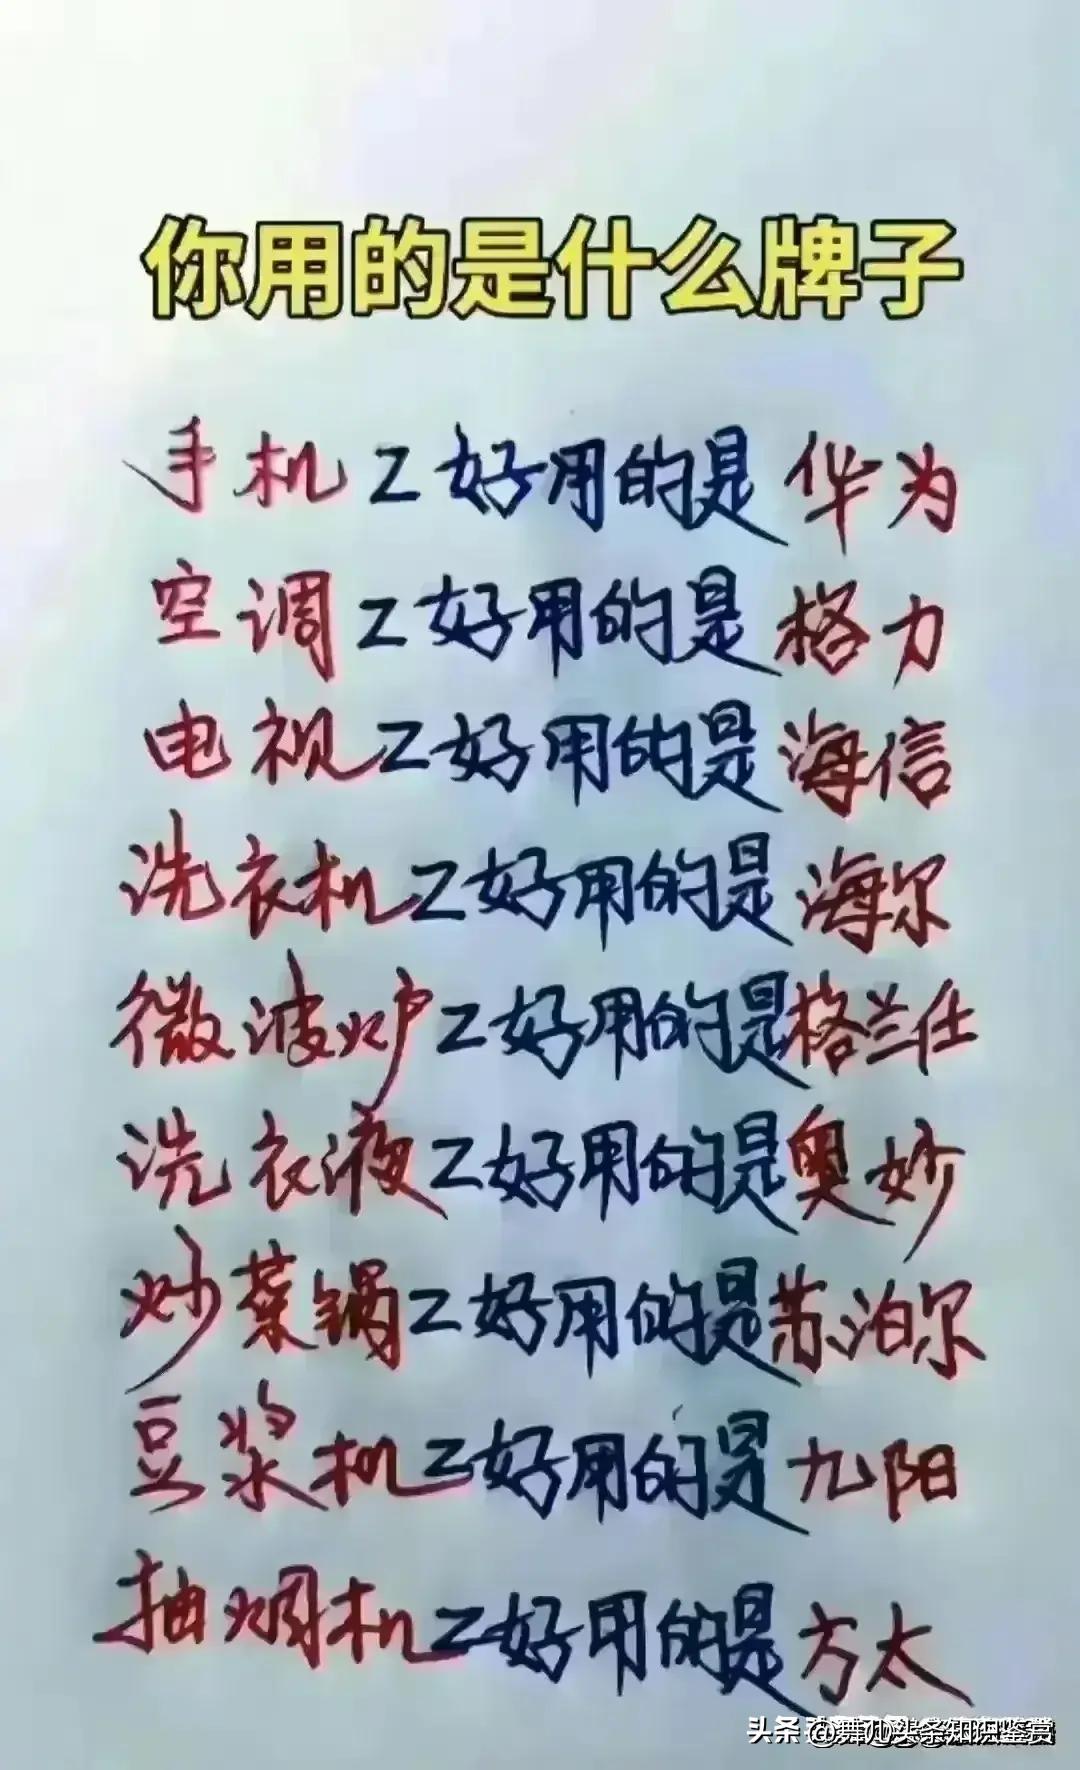 你用的是什么牌子
手机Z好用的是华为
空调Z好用的是格力
电视Z好用的是海信
洗衣机Z好用的是海尔
微波炉Z好用的是格兰仕
洗衣液Z好用的是奥妙
炒菜锅Z好用的是苏泊尔
豆浆机Z好用的是九阳
抽烟机Z好用的是方太
头条 @舞儿头条知识鉴赏